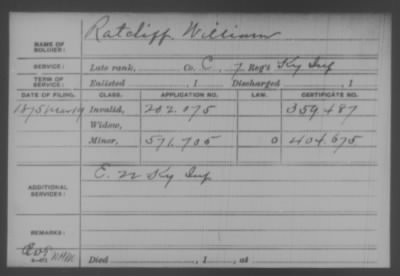 NAME OF SOLDIER: Ratcliff William
SERVICE: Late rank, Co. C, 7 Reg't Ky Inf
TERM OF SERVICE: Enlisted , 1 Discharged , 1
DATE OF FILING. CLASS. APPLICATION NO. LAW. CERTIFICATE NO.
1875 Mar 19 Invalid, 202.075 359.487
Widow,
Minor, 571.705 0 404.675
ADDITIONAL SERVICES: E. 22 Ky Inf
REMARKS:
Died , 1 , at